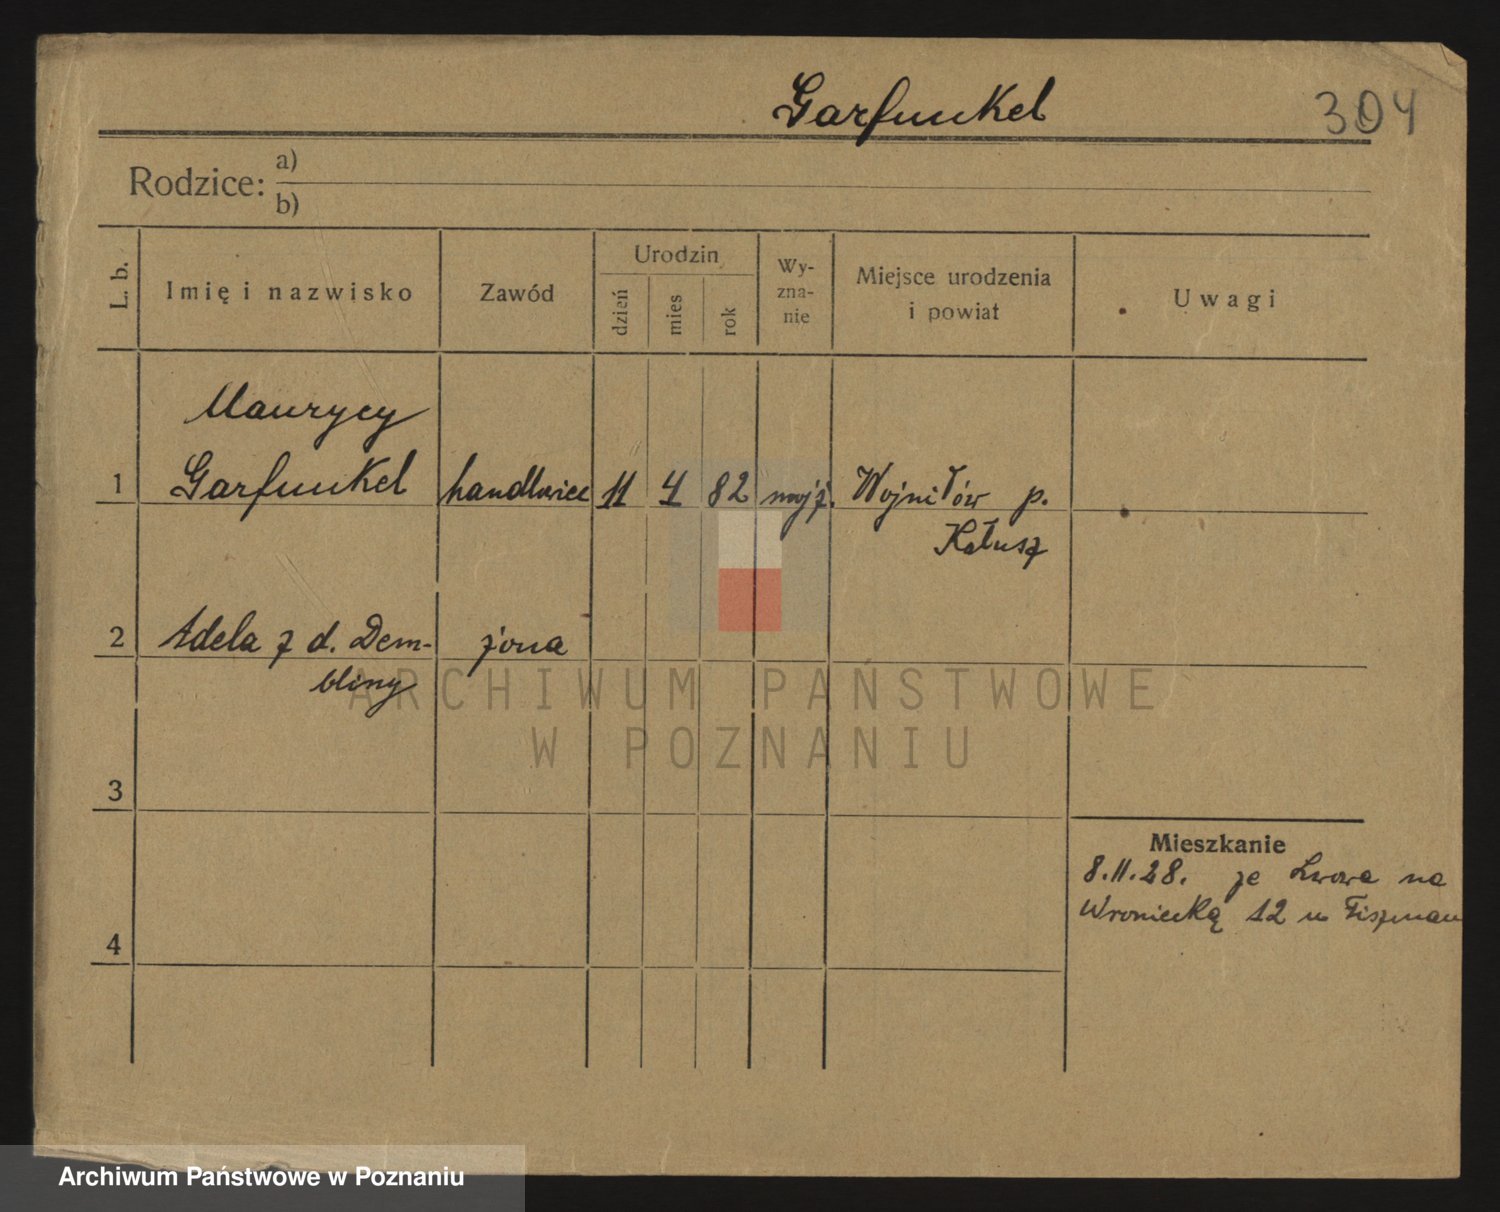 Garfunkel
304
Rodzice: a)
b)
L. b.
Imię i nazwisko
Zawód
Urodzin
dzień
mies
rok
Wy-
zna-
nie
Miejsce urodzenia
i powiat
Uwagi
Maurycy
1 Garfunkel handlowiec 11 4 82 mojż. Wojniłów p.
Kałusz
2 Adela z d. Dem- żona
bliny
ARCHIWUM PAŃSTWOWE
W POZNANIU
3
Mieszkanie
8.11.28. ze Lwowa na
Wroniecką 12 u Fiszman
4
Archiwum Państwowe w Poznaniu